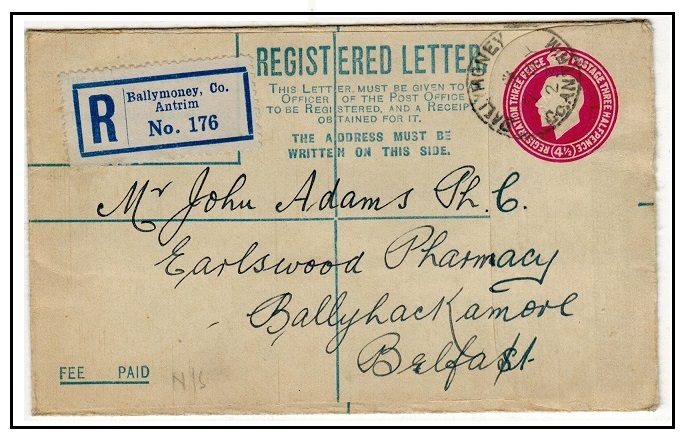 REGISTERED LETTER
THIS LETTER, MUST BE GIVEN TO
OFFICER OF THE POST OFFICE
TO BE REGISTERED, AND A RECEIPT
OBTAINED FOR IT.
THE ADDRESS MUST BE
WRITTEN ON THIS SIDE.
R
Ballymoney, Co.
Antrim
No. 176
BALLYMONEY
REGISTRATION THREE PENCE
POSTAGE THREE HALFPENCE
(4½)
Mr John Adams Ph. C.
Earlswood Pharmacy
Ballyhackamore
Belfast
FEE PAID
N/S